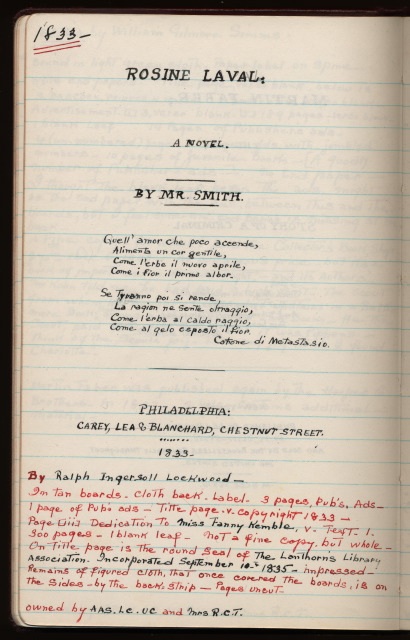 1833-
ROSINE LAVAL:
A NOVEL.
BY MR. SMITH.
Quell' amor che poco accende,
Alimenta un cor gentile,
Come l'erbe il nuovo aprile,
Come i fior il primo albor.
Se Tyranno poi si rende,
La ragion ne sente oltraggio,
Come l'erba al caldo raggio,
Come al gelo esposto il fior.
Catone di Metastasio.
PHILADELPHIA:
CAREY, LEA & BLANCHARD, CHESTNUT STREET.
1833-
By Ralph Ingersoll Lockwood —
In tan boards. Cloth back. Label. 3 pages, Pub's. Ads-
1 page of Pub's ads - Title page. v. copyright 1833 —
Page (iii) Dedication To Miss Fanny Kemble. v - Text - 1.
300 pages - 1 blank leaf - Not a fine copy, but whole -
On Title page is the round seal of The Lanthorns Library
Association. Incorporated September 10th 1835 - impressed -
Remains of figured cloth, that once covered the boards, is on
the sides - by the back strip - Pages uncut -
owned by AAS. LC. UC and Mrs R.C.T.